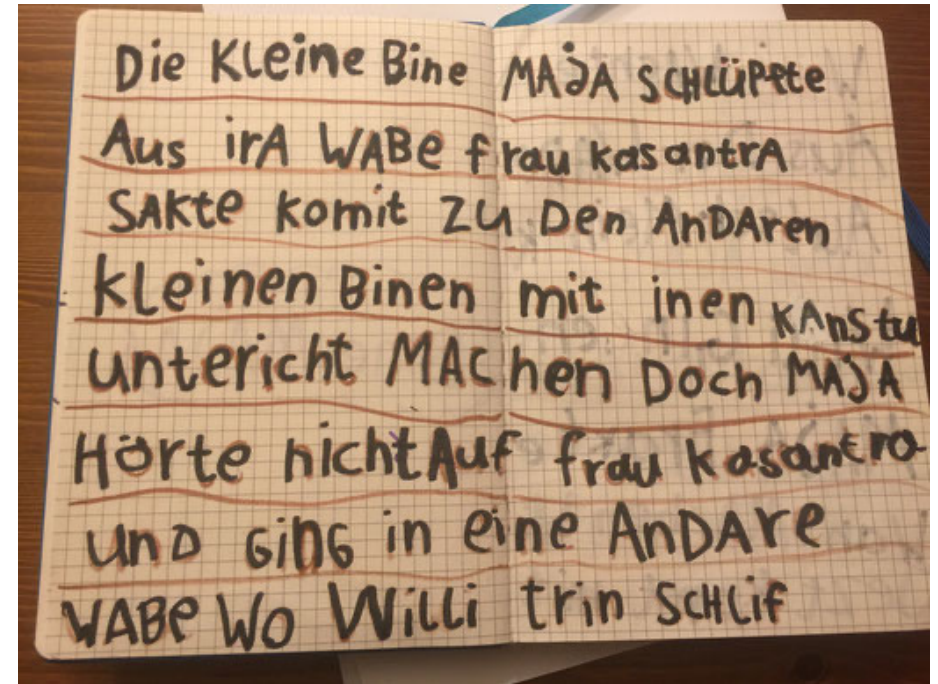 Die KLeine Bine MAJA SCHLÜPfte
Aus irA WABe frau kasantrA
SAKte komit ZU Den AnDAren
kLeinen Binen mit inen KAnStu
untericht MAChen Doch MAJA
Hörte nicht Auf frau kasantra
unD GinG in eine AnDAre
WABe Wo WiLLi trin SCHLif